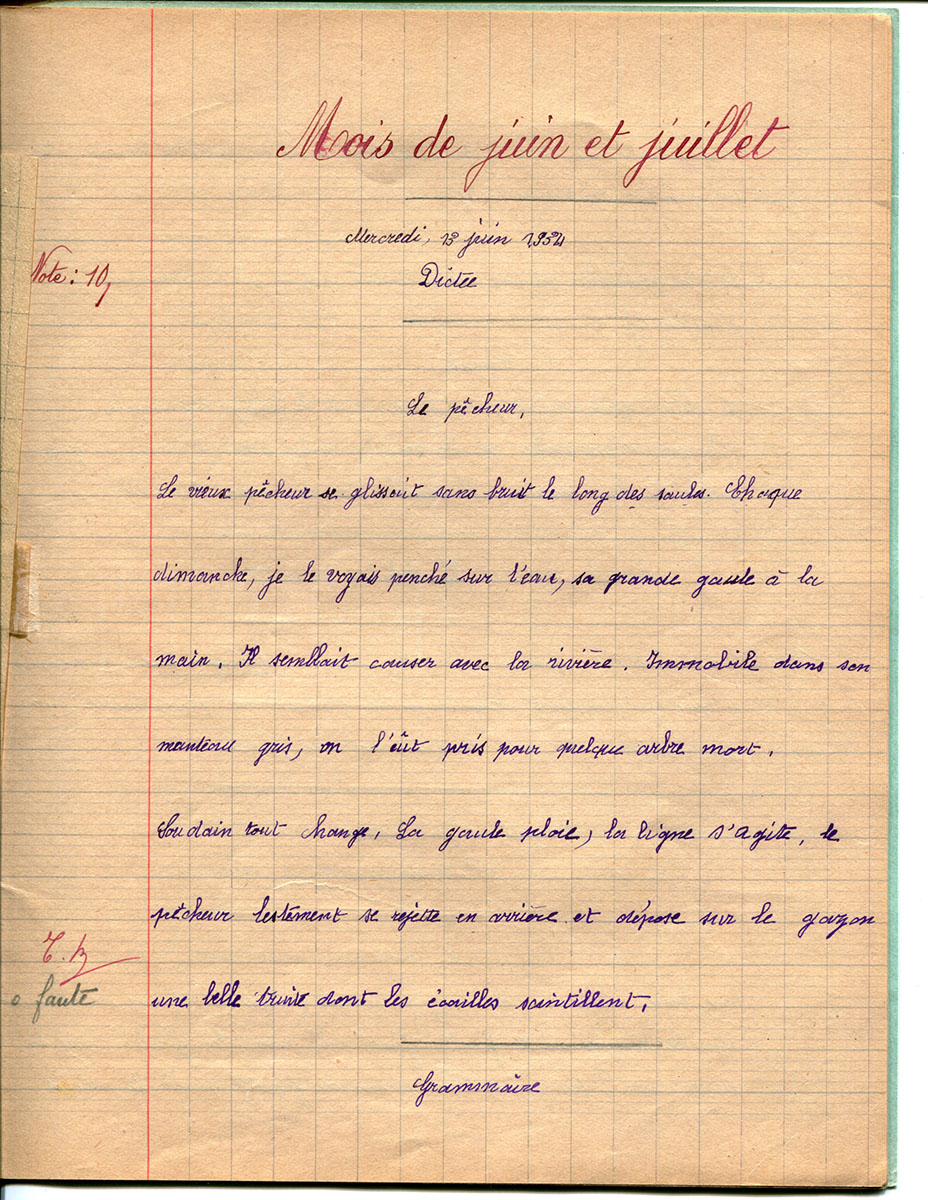 Mois de juin et juillet
Mercredi, 13 juin 1934
Note : 10,
Dictée
Le pêcheur.
Le vieux pêcheur se glissait sans bruit le long des saules. Chaque
dimanche, je le voyais penché sur l'eau, sa grande gaule à la
main. Il semblait causer avec la rivière. Immobile dans son
manteau gris, on l'eût pris pour quelque arbre mort.
Soudain tout change. La gaule ploie, la ligne s'agite, le
pêcheur lestement se rejette en arrière et dépose sur le gazon
T. B
o faute
une belle truite dont les écailles scintillent.
Grammaire